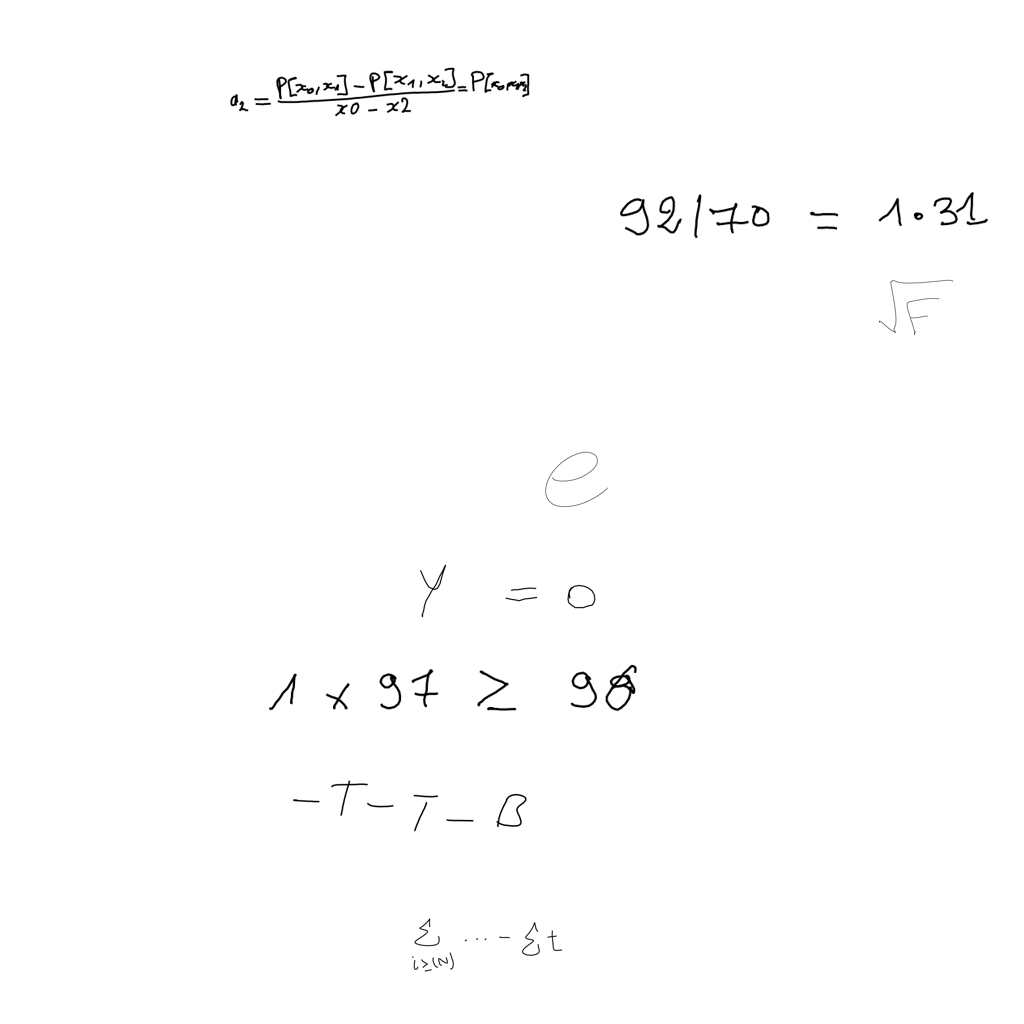 a₂ = (P[x₀,x₁] - P[x₁,x₂]) / (x0 - x2) = P[x₀,x₁,x₂]
92/70 = 1.31
√F
e
Y = 0
1 x 97 ≥
-T-T-B
∑ i≥(N) ... - ∑t